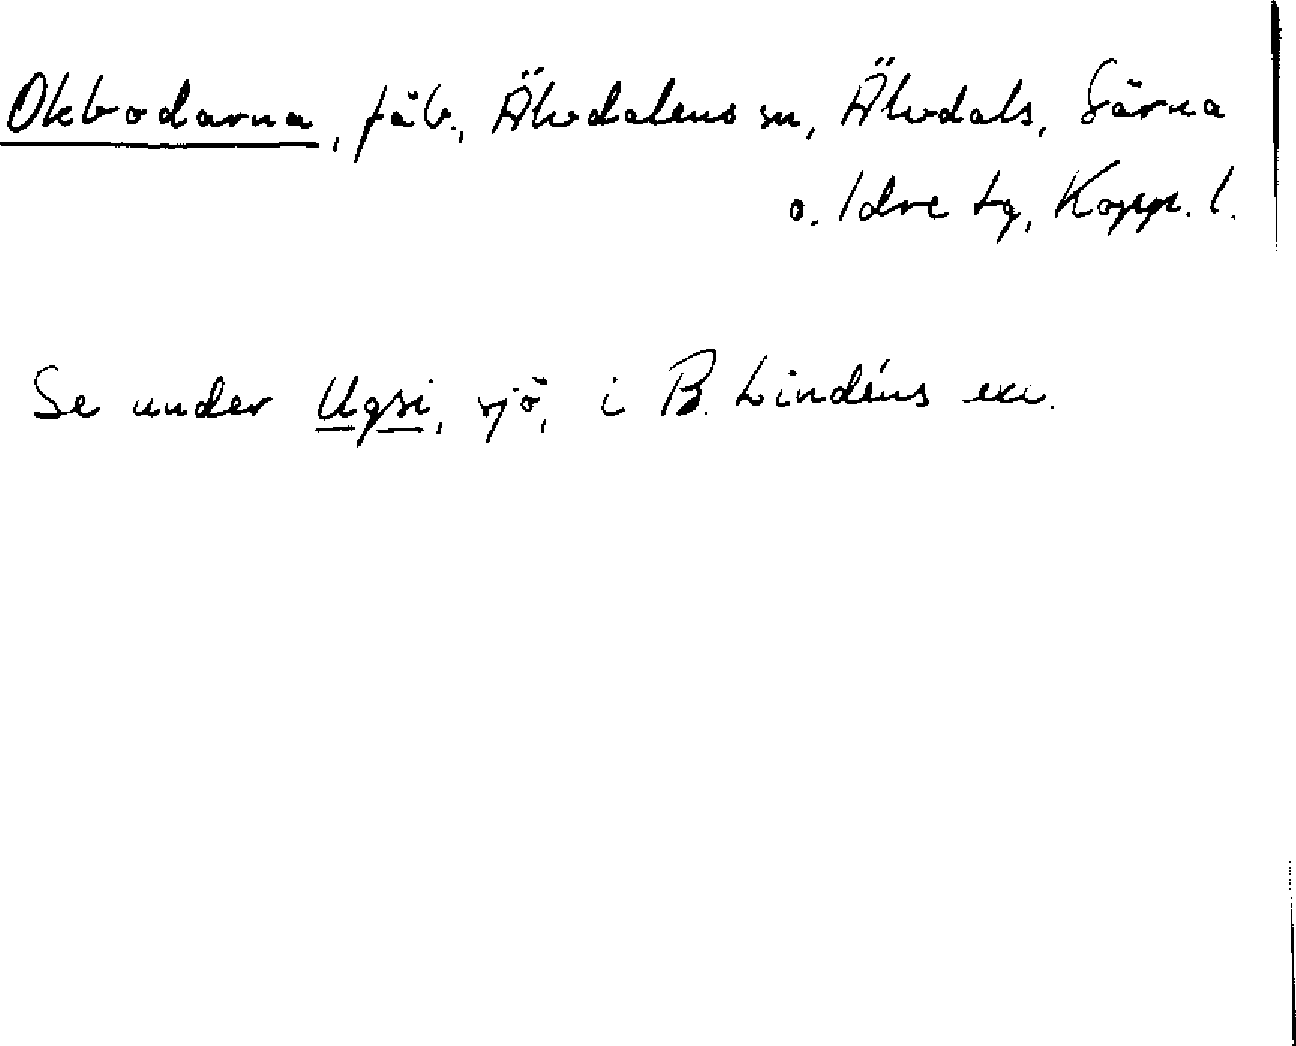 Okbodarna, fäb., Älvdalens sn, Älvdals, Särna
o. Idre tg, Kopp. l.
Se under Ugsi, sjö, i B. Lindéns exc.